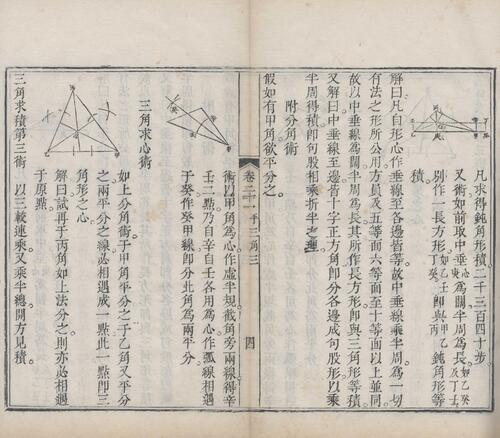 凡求得鈍角形積二千三百四十步
又術如前取中垂心庚為闊半周為長如乙癸及丁壬
別作一長方形如乙壬丁癸即與丙甲乙鈍角形等
積
解曰凡自形心作垂線至各邊皆等故中垂線乘半周為一切
有法之形所公用方員及五等面六等面至十等面以上並同
故以中垂線為闊半周為長其所作長方形即與三角形等積
又解曰中垂線至邊皆十字正方角即分各邊成句股形以乘
半周得積即句股相乘折半之理
附分角術
假如有甲角欲平分之
卷二十一 平三角三 四
術以甲角為心作虛半規截角旁兩線得辛
壬二點乃自辛自壬各用為心作弧線相遇
于癸作癸甲線即分此角為兩平分
三角求心術
如上分角術于甲角平分之于乙角又平分
之兩平分之線必相遇成一點此一點即三
角形之心
解曰試再于丙角如上法分之則亦必相遇
于原點
三角求積第三術 以三較連乘又乘半總開方見積